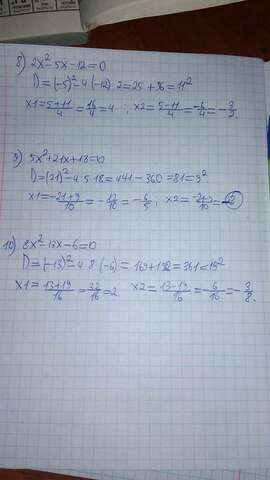 8) 2x²-5x-12=0
D=(-5)²-4·(-12)·2=25+96=11²
x1=5+11/4=16/4=4 ; x2=5-11/4=-6/4=-3/2.
9) 5x²+21x+18=0
D=(21)²-4·5·18=441-360=81=9²
x1=-21+9/10=-12/10=-6/5; x2=-21-9/10=-3
10) 8x²-13x-6=0
D=(-13)²-4·8·(-6)=169+192=361=19²
x1=13+19/16=32/16=2 x2=13-19/16=-6/16=-3/8.